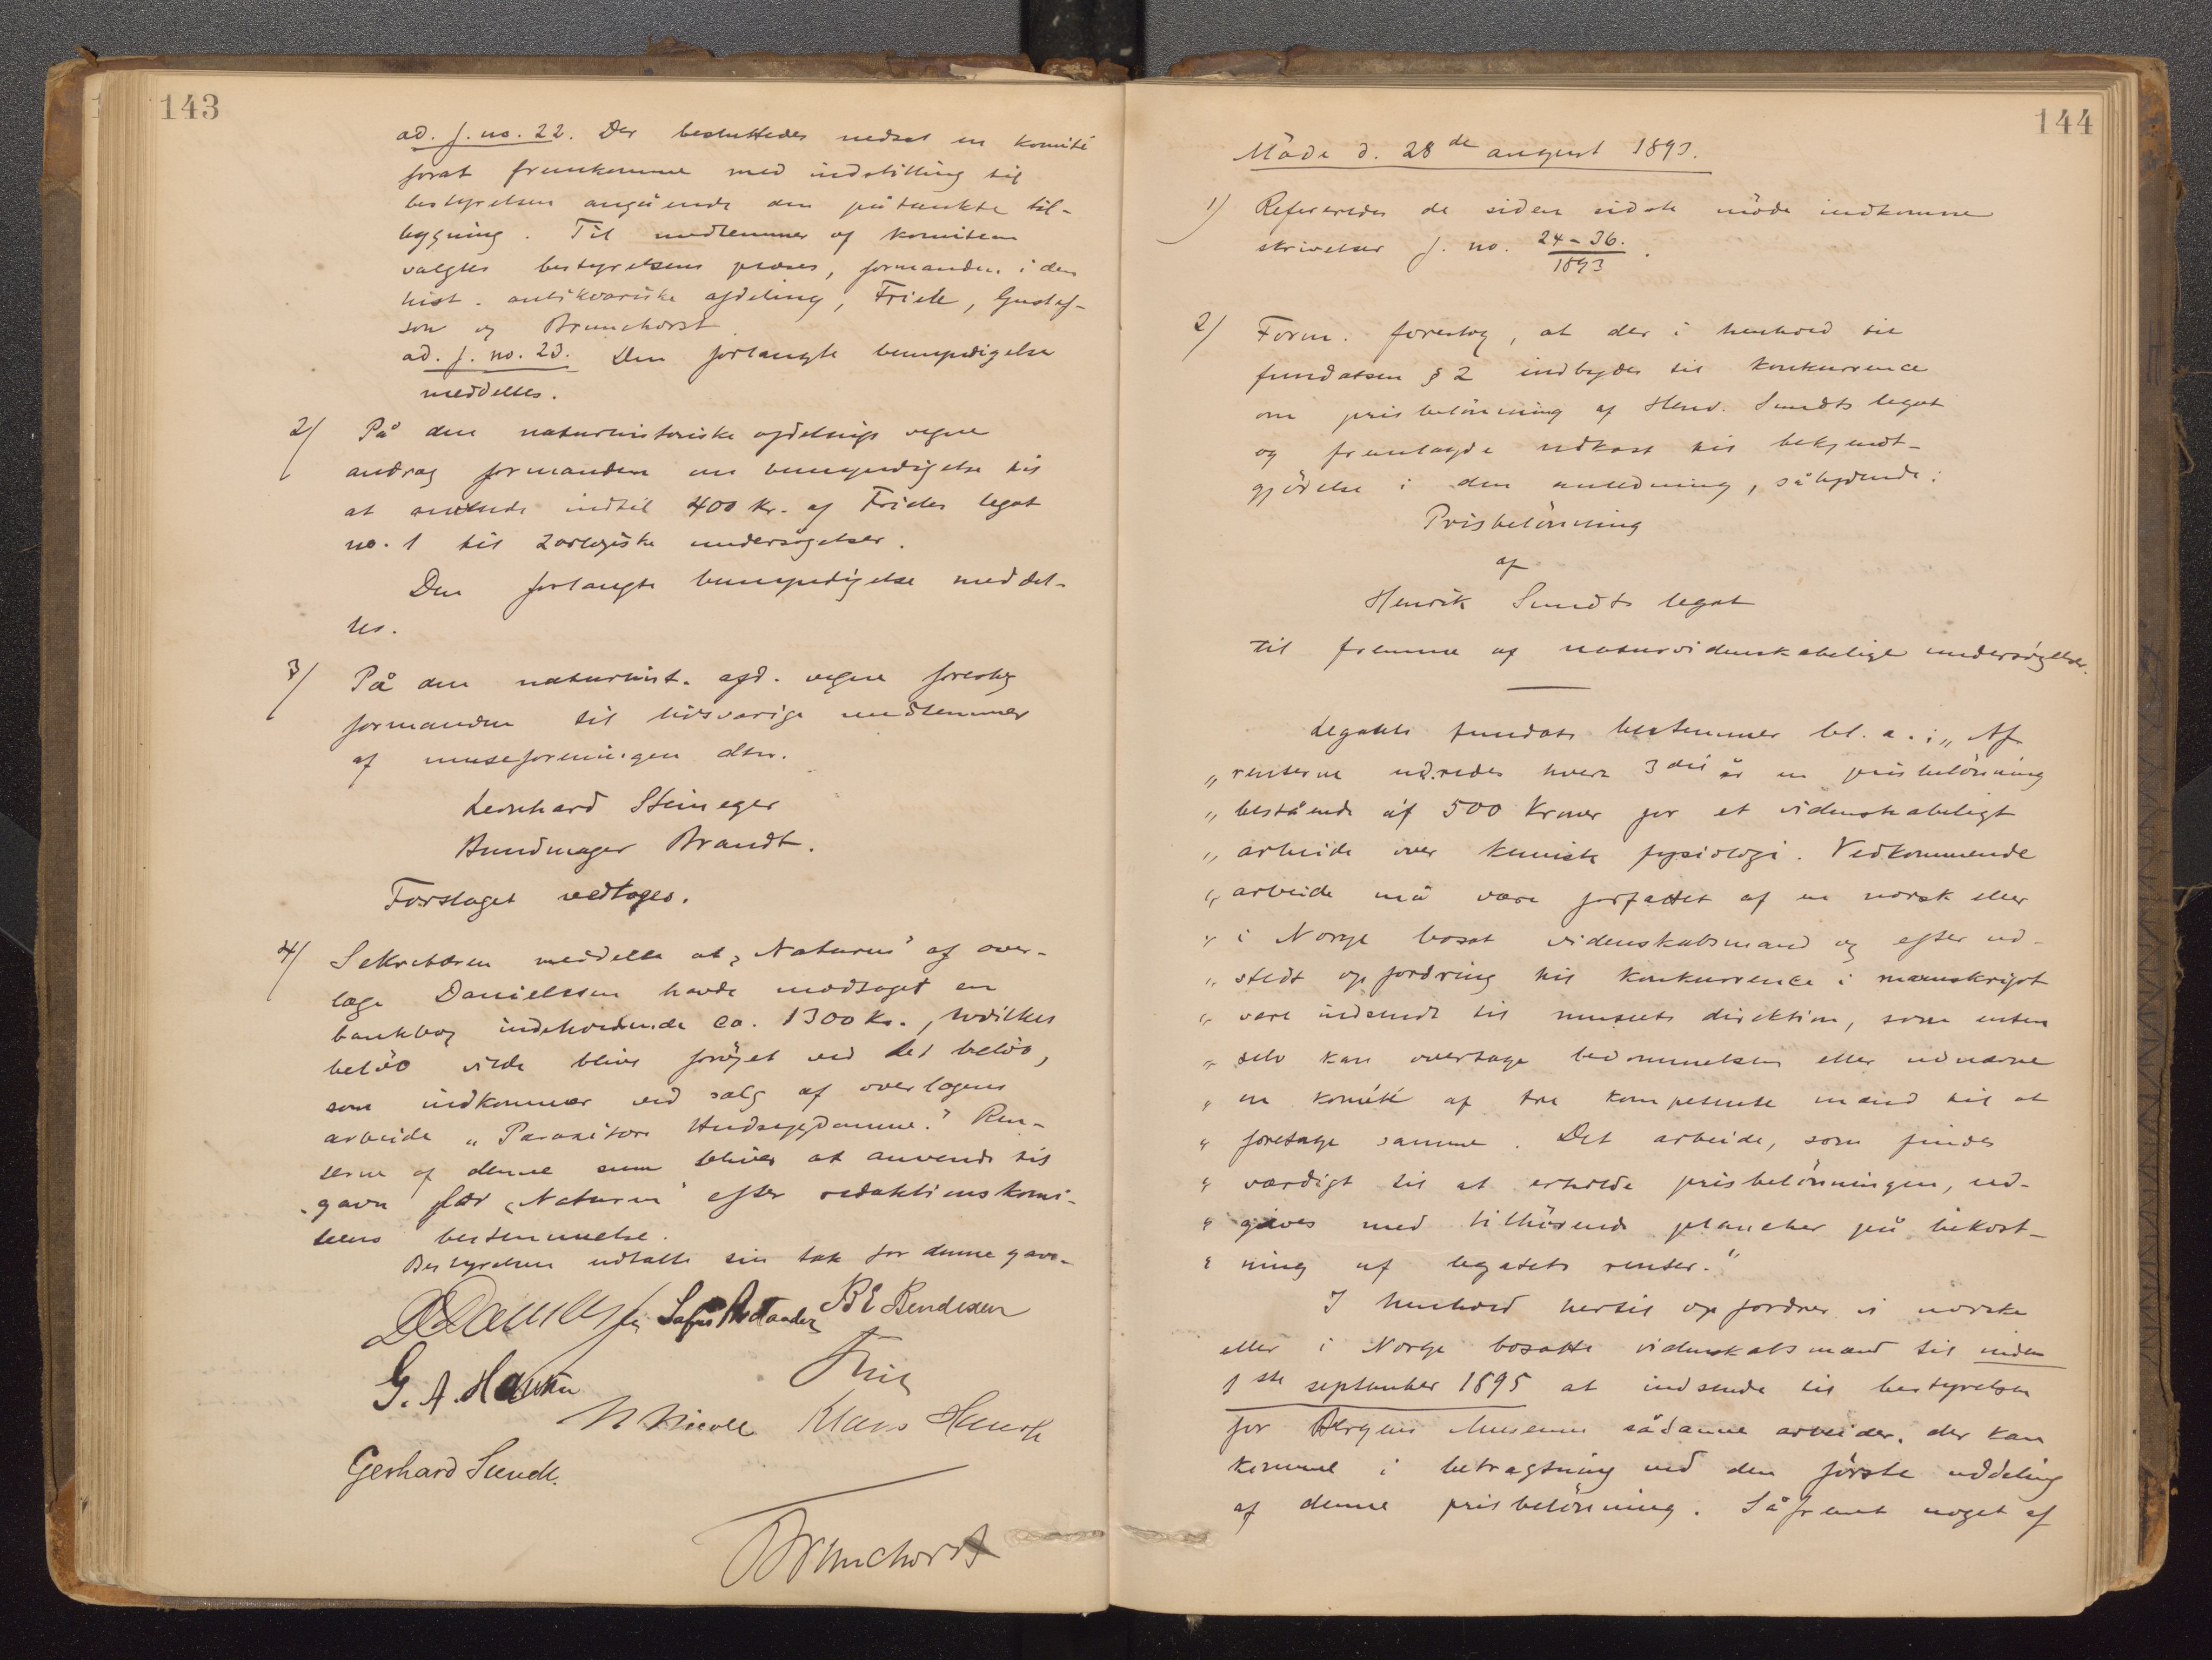 143
ad. J. no. 22. Der besluttedes nedsat en komité
forat fremkomme med indstilling til
bestyrelsen angående den påtænkte til-
bygning. Til medlemmer af komiteen
valgtes bestyrelsens præses, formanden i den
hist. antikvariske afdeling, Friele, Gustaf-
son og Brunchorst.
ad. J. no. 23. Den forlangte bemyndigelse
meddeltes.
2/ På den naturhistoriske afdelings vegne
androg formanden om bemyndigelse til
at anvende indtil 400 kr. af Frieles legat
no. 1 til zoologiske undersøgelser.
Den forlangte bemyndigelse meddel-
tes.
3/ På den naturhist. afd. vegne foreslog
formanden til livsvarige medlemmer
af museforeningen dhrr.
Leonhard Steineger
Bundmager Brandt.
Forslaget vedtoges.
4/ Sekretæren meddelte at „Naturen" af over-
læge Danielssen havde modtaget en
bankbog indeholdende ca. 1300 kr., hvilket
beløb vilde blive forøget ved det beløb,
som indkommer ved salg af overlægens
arbeide „Parasitære Hudsygdomme." Ren-
terne af denne sum bliver at anvende til
gavn for „Naturen" efter redaktionskomi-
teens bestemmelse.
Bestyrelsen udtalte sin tak for denne gave.
D C Danielssen BE Bendixen
G. A. Hansen Friele
N Nicoll Klaus Hanssen
Gerhard Sundt.
JBrunchorst
144
Möde d. 28de august 1893.
1) Refereredes de siden sidste möde indkomne
skrivelser J. no. 24-36./1893.
2/ Form. foreslog, at der i henhold til
fundatsen § 2 indbydes til konkurrence
om prisbelönning af Henr. Sundts legat
og fremlagde udkast til bekjendt-
gjörelse i den anledning, sålydende:
Prisbelönning
af
Henrik Sundts legat
til fremme af naturvidenskabelige undersögelser.
Legatets fundats bestemmer bl. a.: „Af
„renterne udredes hvert 3die år en prisbelönning
„bestående af 500 Kroner for et videnskabeligt
„arbeide over kemisk fysiologi. Vedkommende
„arbeide må være forfattet af en norsk eller
„i Norge bosat videnskabsmand og efter ud-
„stedt opfordring til konkurrence i manuskript
„være indsendt til museets direktion, som enten
„selv kan overtage bedømmelsen eller udnævne
„en komité af tre kompetente mænd til at
„foretage samme. Det arbeide, som findes
„værdigt til at erholde prisbelönningen, ud-
„gives med tilhörende plancher på bekost-
„ning af legatets renter."
I henhold hertil opfordrer vi norske
eller i Norge bosatte videnskabsmænd til inden
1ste september 1895 at indsende til bestyrelsen
for Bergens Museum sådanne arbeider, der kan
komme i betragtning ved den förste uddeling
af denne prisbelönning. Såfremt noget af